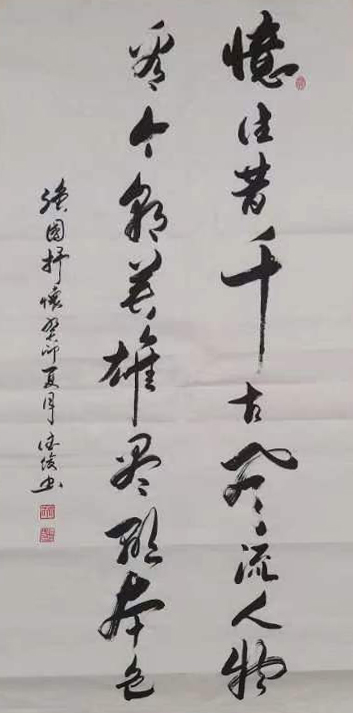 憶往昔千古風流人物
看今朝英雄盡顯本色
強國抒懷癸卯夏月俊書